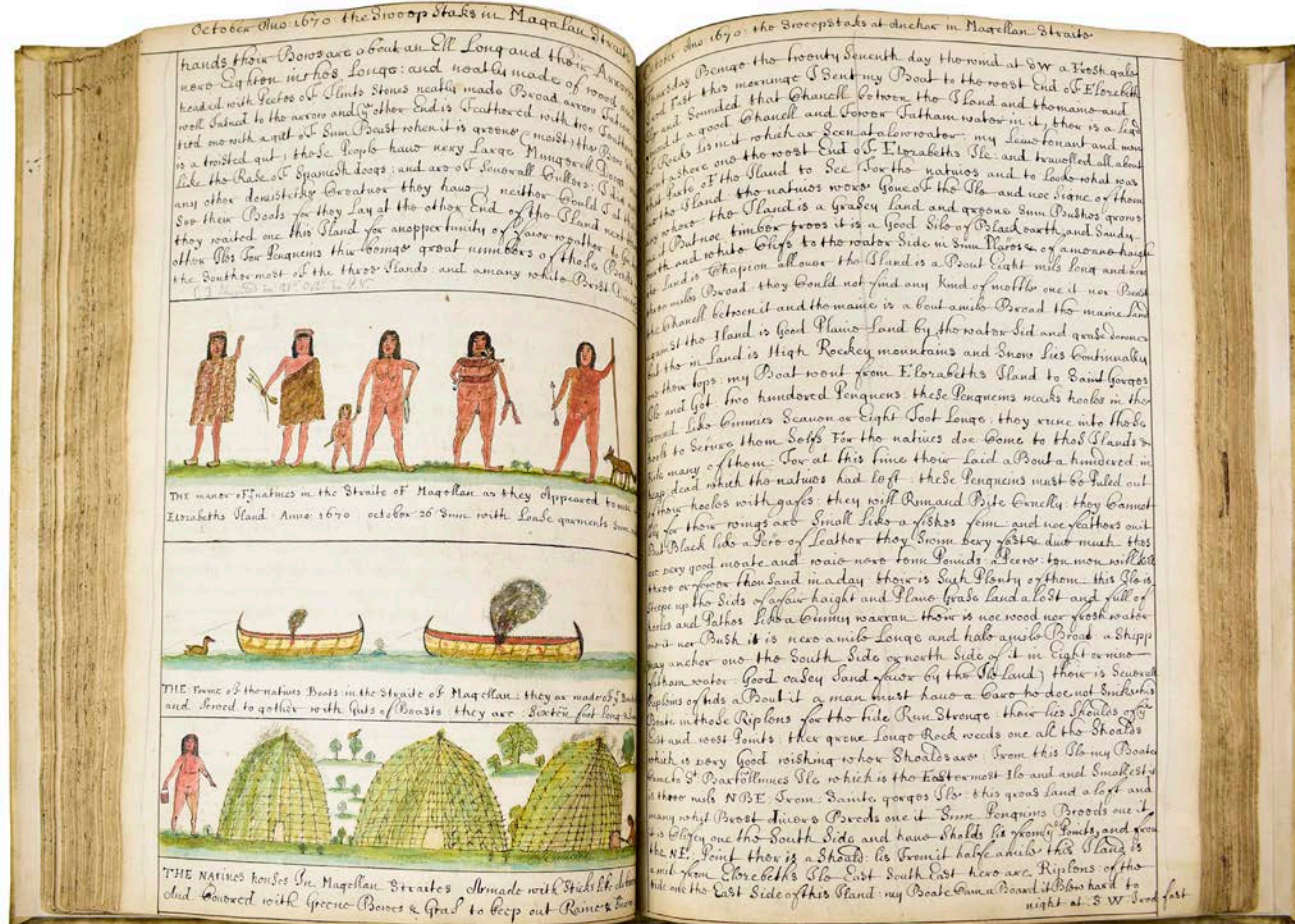 October Ano: 1670: the Swoop Staks in Magalan Straits
hands their Bows are about an Ell Long and their Arrows
nere Eighten inches Longe: and neatly made of wood and
headed with Peeces of Flints Stones neatly made Broad arrow
well Fasned to the arrow and ye other End is Feathered with two Feathers
tied one with a gutt of Sum Beast when it is greene & moist; the Bow
is a twisted gut; these People have very Large Mungerell Doogs
Like the Rase of Spanesh doogs: and are of Severall Cullers: I did
any other domisticke Creatuer they have; neither Could I at
See their Boats for they Lay at the other End of the Iland next
they waited one this Iland for an oppertunity of Fawor weather to Go
other Iles For Penguems thir beinge great numbers of those
the Souther most of the three Ilands: and amany white Brest
THE manor of ye natives in the Straite of Magellan as they Appeared to
Elezabeths Iland: Anno: 1670 october 26 Sum with Loase garments
THE: Forme of the natives Boats: in the Straite of Magellan: they ar made of
and Sewed to gother with Guts of Beasts: they are: Sixten foot long
THE NATIVES houses In Magellan Straites Ar made with Sticks Like
And Covered with Greene Bowes & Gras to keep out Raine &
October Ano 1670: the Sweepstaks at Anchor in Magellan Straits
Thursday Beinge the twenty Seventh day the wind at S W a Fresh gale
East this morninge I Sent my Boat to the west End of Elezebeth
and Sounded that Chanell betwen the Iland and the maine and
a good Chanell and Fower Fatham water in it; ther is a
Rocks lis in it which ar Seen at a low water: my Leuetonant and
a shore one the west End of Elezabeths Ile: and travelled all about
Parts of the Iland to See For the natives and to looke what was
the Iland the natives were Gone of the Ile and noe Signe of them
where the Iland is a Grasey land and greene Sum Bushes growes
But noe timber trees it is a Good Sile of Black earth and Sandy
and white Clifs to the water Side in Sum Places & of a meane haight
Land is Chapion all over the Iland is a Bout Eight mils long and
mils Broad: they Could not find any Kind of mettle one it nor Beast
the Chanell between it and the maine is a bout a mile Broad the maine Land
against the Iland is Good Plaine Land by the water Sid and grase downes
but the in Land is High Rockey mountains and Snow lies Continually
one their tops: my Boat went from Elezabeths Iland to Saint Gorges
Ile and Got two hundered Penguens: these Penguems maks hooles in the
Ground Like Cunnies Seaven or Eight Foot Longe: they rune into these
hools to Secure them Selfs For the natives doe Come to thes Ilands &
Kils many of them For at this time their laid a Bout a hundered in
heap dead which the natives had left: these Penguems must be Puled out
of their hooles with gafes: they will Run and Bite Cruelly: they Cannot
fly for their wings are Small Like a fishes fenn and noe feathers on it
But Black like a Pece of Leather they Swim very fast & dive much thes
are very good meate and waie nere tenn Pounds a Peece: ten men will Kill
three or fower thousand in a day their is Such Plenty of them: this Ile is
Steepe up the Sids of a fair haight and Plane Grase land a loft and full of
hooles and Pathes Like a Cunny warran their is noe wood nor fresh water
one it nor Bush it is nere a mile Longe and hale a mile Broad: a Shipp
may anchor one the South Side or north Side of it in Eight or nine
fatham water Good oasey Sand favor by the Ile land; their is Severall
Riplens of tids a Bout it a man must have a Care he doe not Sinke his
Boate in those Riplens for the tide Run Stronge: their lies Shoules of ye
East and west Points: ther grow Longe Rock weeds one all the Shoalds
which is very Good wishing wher Shoalds are: From this Ile my Boate
Came to St Bartollmues Ile which is the Easter most Ile and and Smallest
it three mils NBE: From: Sainte gorges Ile: this gras Land a loft and
many whit Brest divers Breeds one it Sum Penguins Breeds one it
it is Clifey one the South Side and have Shalds lis from ye Points, and from
the NE: Point ther is a Shoald: lis From it halfe a mile this Iland is
a mile from Elezebeths Ile East South East here are Riplens: of the
tide one the East Side of this Iland: my Boate Cam a Board it Blow hard to
night at: S W